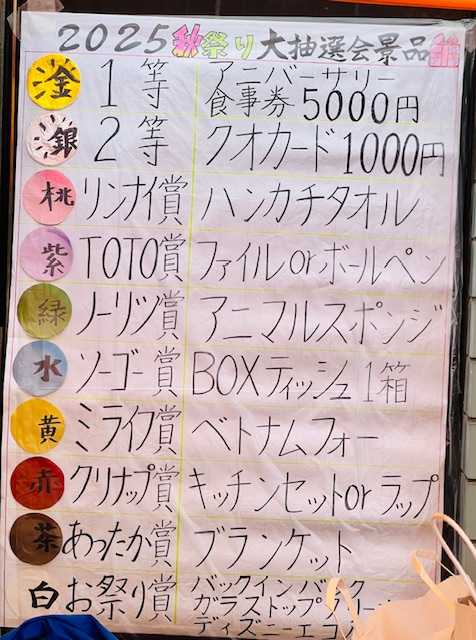 2025秋祭り大抽選会景品
金 1等 アニバーサリー
食事券5000円
銀 2等 クオカード1000円
桃 リンナイ賞 ハンカチタオル
紫 TOTO賞 ファイルorボールペン
緑 ノーリツ賞 アニマルスポンジ
水 ソーゴー賞 BOXティッシュ1箱
黄 ミライク賞 ベトナムフォー
赤 クリナップ賞 キッチンセットorラップ
茶 あったか賞 ブランケット
白 お祭り賞 バックインバック
ガラストップクリーナー
ディズニーエコ